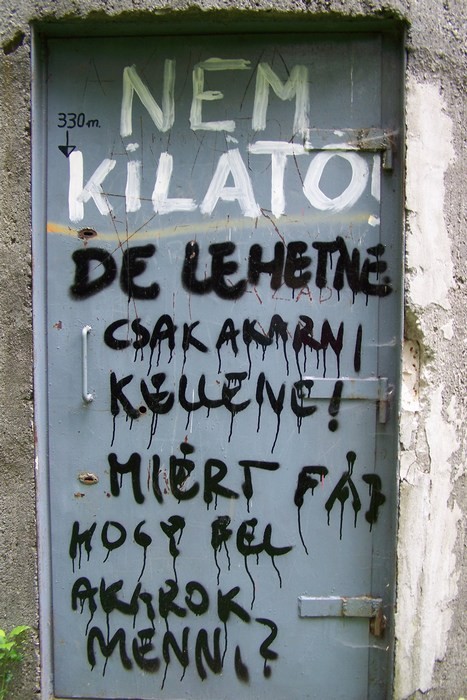 NEM
330 m.
KILÁTÓ
DE LEHETNE
CSAK AKARNI
KELLENE!
MIÉRT FÁJ
HOGY FEL
AKAROK
MENNI?